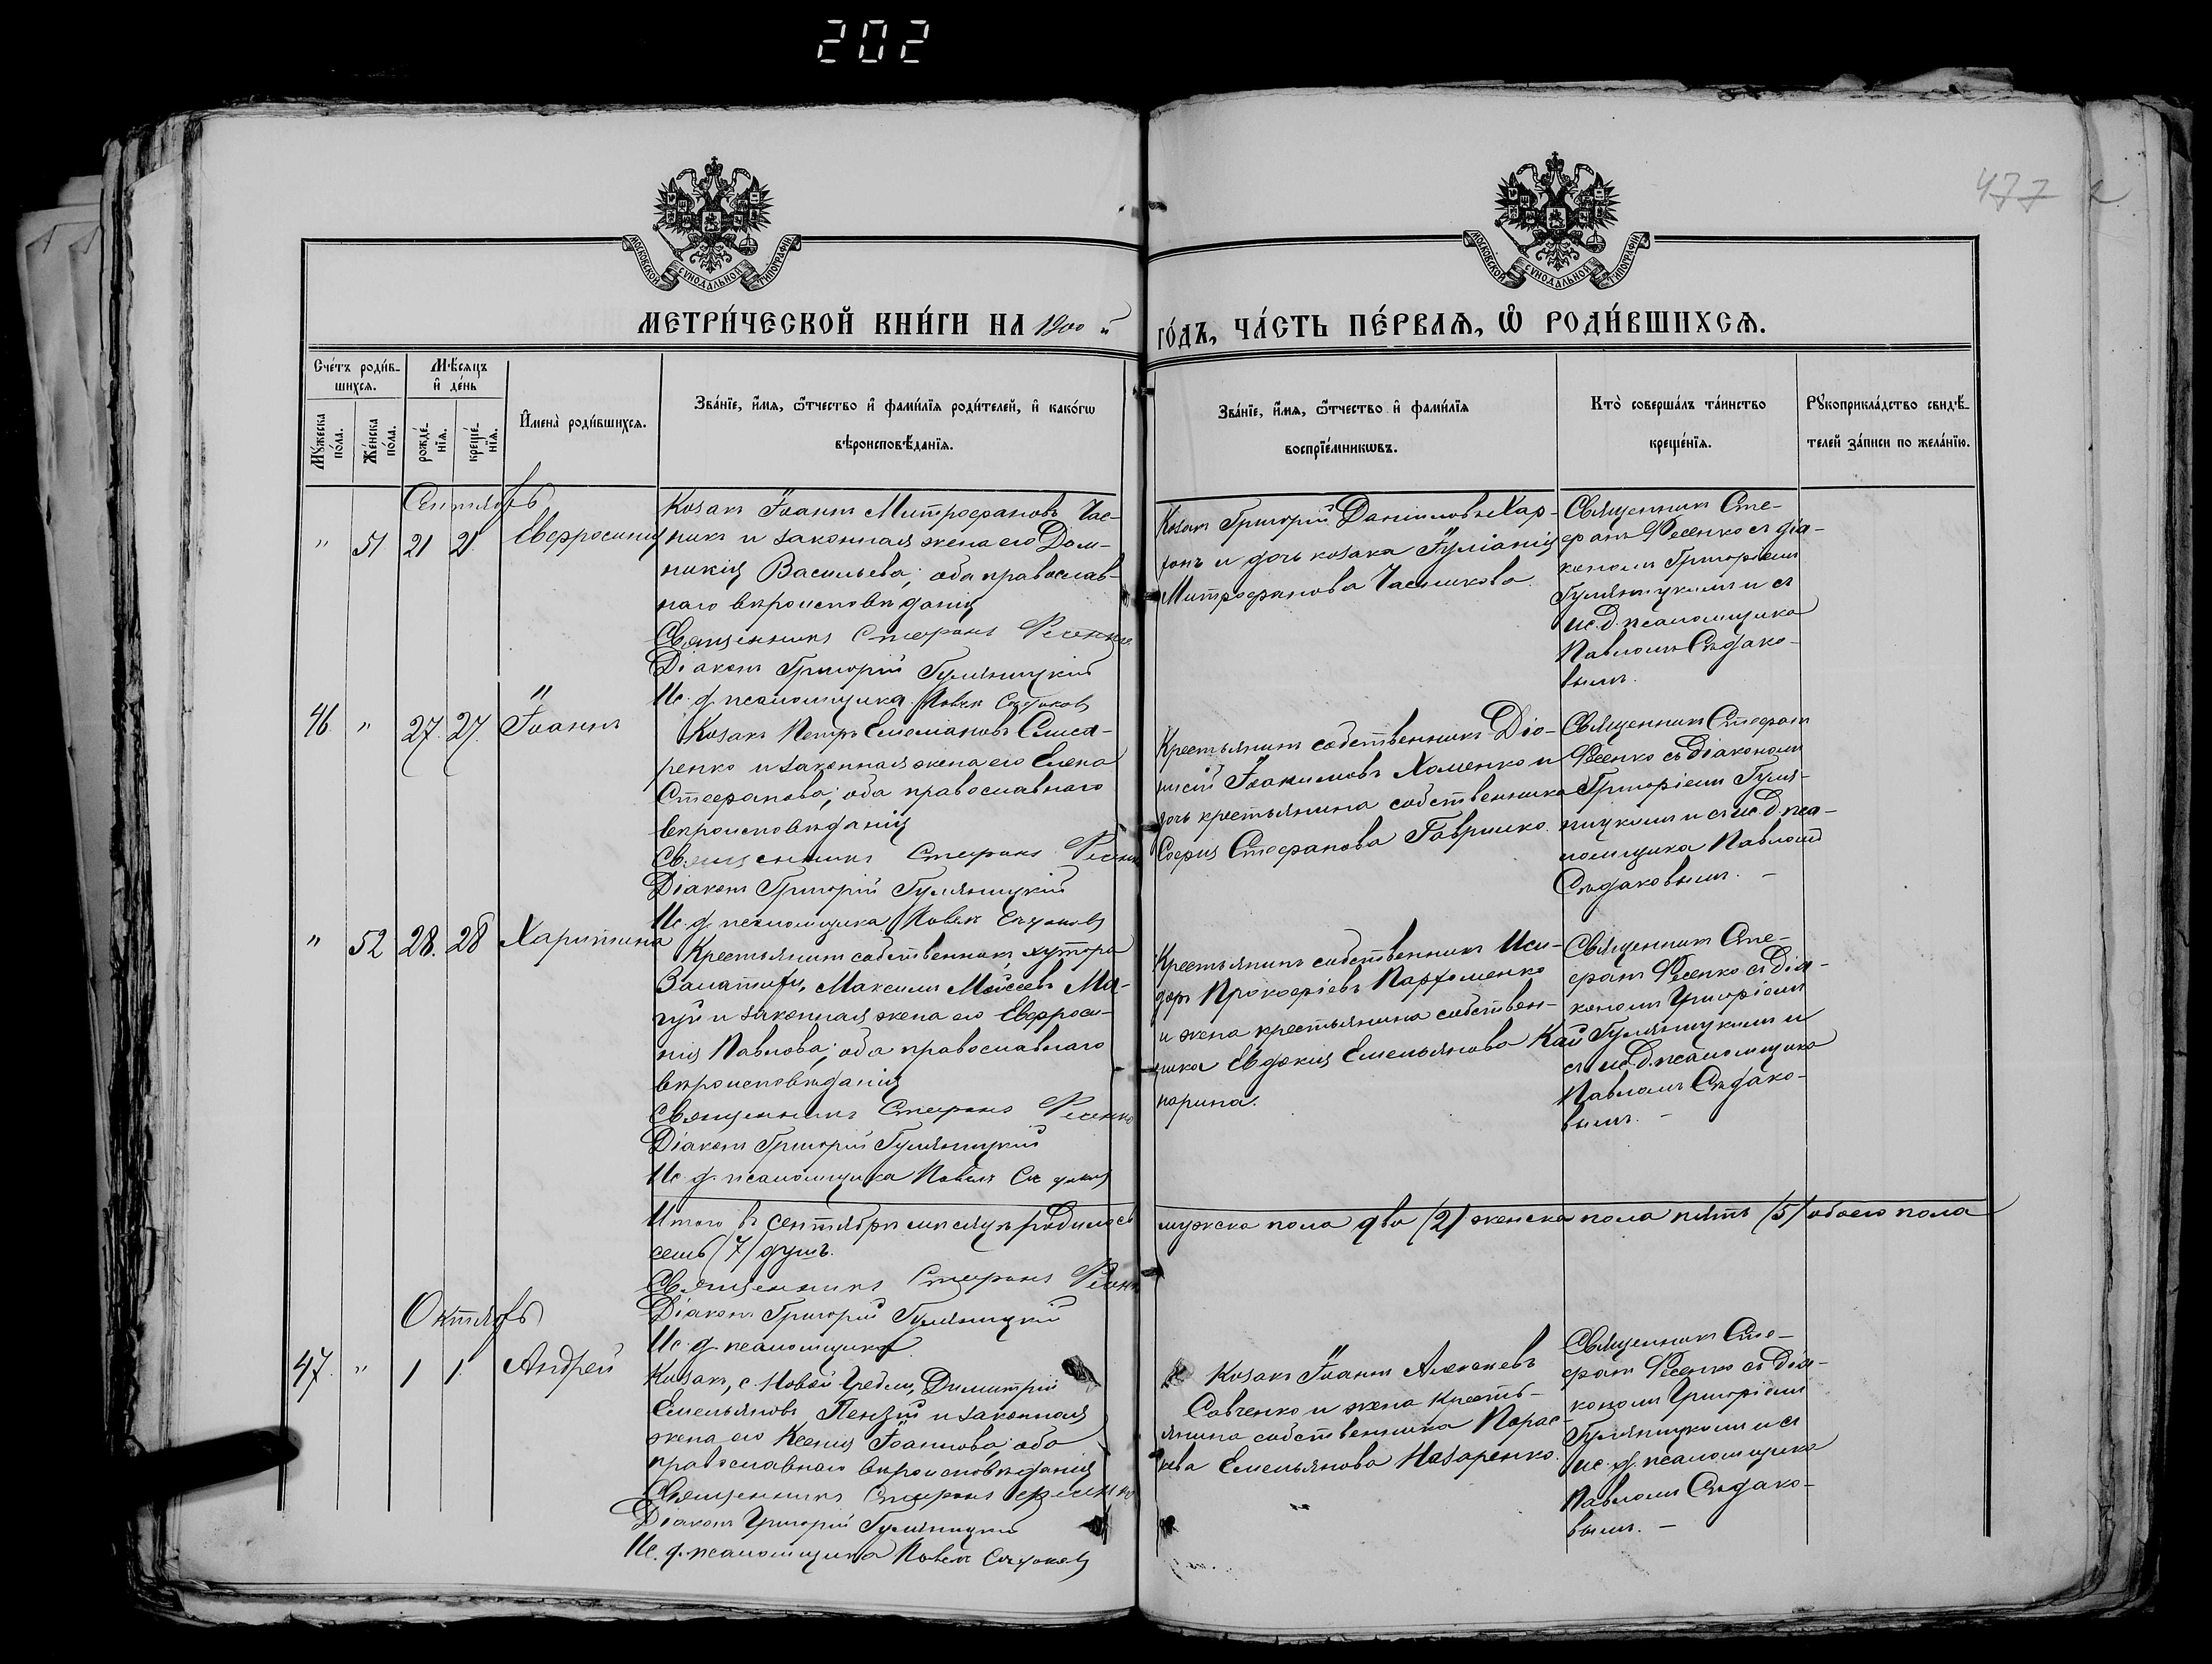 202
477
МОСКОВСКОЙ СѴНОДАЛЬНОЙ ТИПОГРАФІИ
МОСКОВСКОЙ СѴНОДАЛЬНОЙ ТИПОГРАФІИ
МЕТРИ́ЧЕСКОЙ КНИ́ГИ НА 1900 й
ГО́ДЪ, ЧА́СТЬ ПЕ́РВАѦ, Ѡ҆ РОДИ́ВШИХСѦ.
Сче́тъ роди́в-
шихсѧ.
Мѣ́сѧцъ
и҆ де́нь
Мꙋ́жеска
по́ла.
Же́нска
по́ла.
рожде́-
нїѧ.
креще́-
нїѧ.
И҆мена̀ роди́вшихсѧ.
Зва́нїе, и҆́мѧ, ѻ҆́тчество и҆ фами́лїѧ роди́телей, и҆ како́гѡ
вѣроисповѣ́данїѧ.
Зва́нїе, и҆́мѧ, ѻ҆́тчество и҆ фами́лїѧ
воспрїе́мникѡвъ.
Кто̀ соверша́лъ та́инство
креще́нїѧ.
Рꙋкоприкла́дство свидѣ́-
телей за́писи по жела́нїю.
Сентябрь
" 51 21 21 Евфросинія
Козакъ Іоаннъ Митрофановъ Час-
никъ и законная жена его Дом-
никія Васильева; оба православ-
наго вѣроисповѣданія
Священникъ Стефанъ Фесенко
Діаконъ Григорій Гуляницкій
Ис. д. псаломщика Павелъ Сѣдаковъ
Козакъ Григорій Даніиловъ Хар-
тонъ и дочь козака Іуліанія
Митрофанова Часникова
Священникъ Сте-
фанъ Фесенко съ діа-
кономъ Григоріемъ
Гуляницкимъ и съ
ис. д. псаломщика
Павломъ Сѣдако-
вымъ.
46 " 27. 27. Іоаннъ
Козакъ Петръ Емеліановъ Слиса-
ренко и законная жена его Елена
Стефанова; оба православнаго
вѣроисповѣданія
Священникъ Стефанъ Фесенко
Діаконъ Григорій Гуляницкій
Ис. д. псаломщика Павелъ Сѣдаковъ
Крестьянинъ собственникъ Діо-
нисій Іоакимовъ Хоменко и
дочь крестьянина собственника
Софія Стефанова Гавришко.
Священникъ Стефанъ
Фесенко съ діакономъ
Григоріемъ Гуля-
ницкимъ и съ ис. д. пса-
ломщика Павломъ
Сѣдаковымъ. -
" 52 28. 28 Харитина
Крестьянинъ собственникъ, хутора
Максимъ Моѵсеевъ Ма-
и законная жена его Евфроси-
нія Павлова; оба православнаго
вѣроисповѣданія
Священникъ Стефанъ Фесенко
Діаконъ Григорій Гуляницкій
Ис. д. псаломщика Павелъ Сѣдаковъ
Крестьянинъ собственникъ Иси-
доръ Прокофіевъ Парфоменко
и жена крестьянина собствен-
ника Евдокія Емельянова Кай
нарина.
Священникъ Сте-
фанъ Фесенко съ діа-
кономъ Григоріемъ
Гуляницкимъ и
съ ис. д. псаломщика
Павломъ Сѣдако-
вымъ. -
Итого въ Сентябрѣ мѣсяцѣ родилось мужска пола два /2/ женска пола пять /5/ обоего пола
семь /7/ душъ.
Священникъ Стефанъ Фесенко
Діаконъ Григорій Гуляницкій
Ис. д. псаломщика
Октябрь
47. " 1 1. Андрей
Козакъ, с. Новой Гребли, Димитрій
Емельяновъ и законная
жена его Ксенія Іоаннова; оба
православнаго вѣроисповѣданія
Священникъ Стефанъ Фесенко
Діаконъ Григорій Гуляницкій
Ис. д. псаломщика Павелъ Сѣдаковъ
Козакъ Іоаннъ Алексѣевъ
Савченко и жена Кресть-
янина собственника Парас-
кева Емельянова Назаренко.
Священникъ Сте-
фанъ Фесенко съ діа-
кономъ Григоріемъ
Гуляницкимъ и съ
ис. д. псаломщика
Павломъ Сѣдако-
вымъ. -